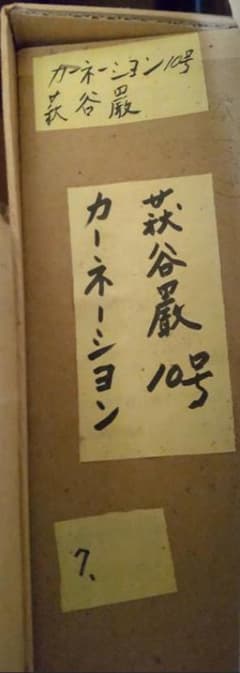 カーネーション10号
荻谷巖
荻谷巖 10号
カーネーション
7、